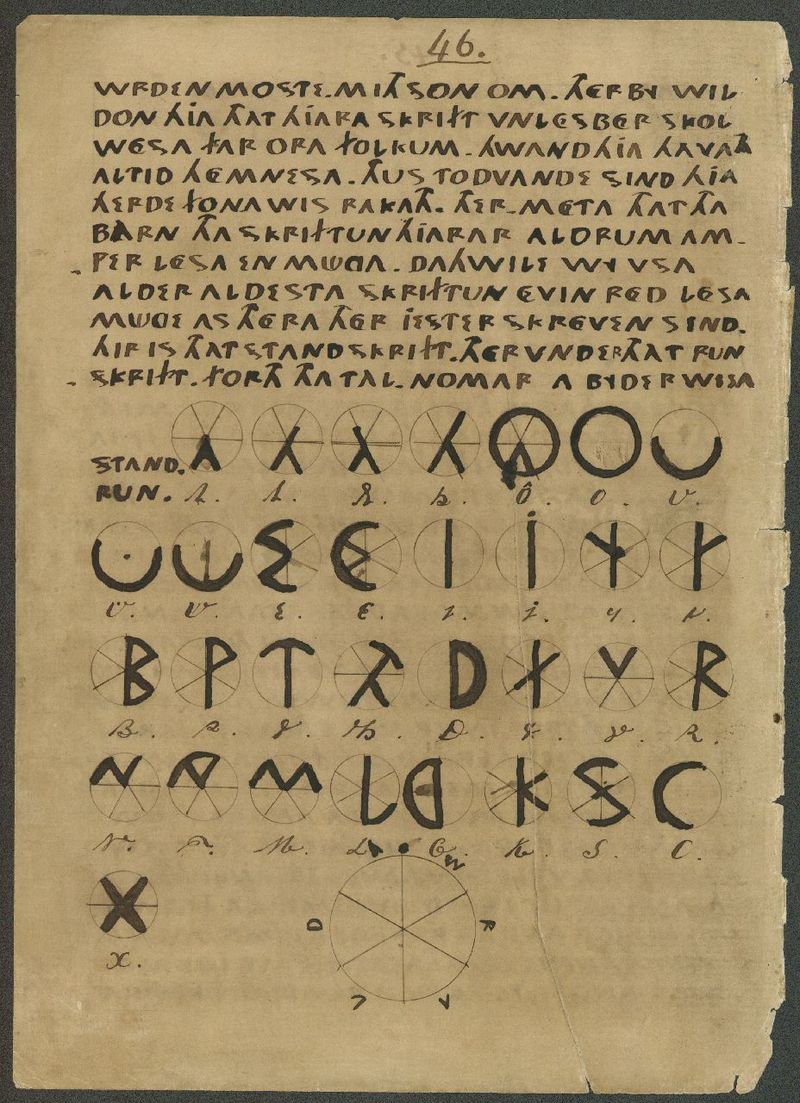 46.
WRDEN MOSTE. MITH SON OM. THER BY WIL
DON HIA THAT HIARA SKRIFT VNLESBER SKOL
WESA FAR ORA FOLKUM. HWAND HIA HAVATH
ALTID HEMNESA. THUS TODVANDE SIND HIA
HERDE FONA WIS RAKATH. THER-META THAT THA
BARN THA SKRIFTUN HIARAR ALDRUM AM-
PER LESA EN MUGA. DAHWILE WY VSA
ALDER ALDESTA SKRIFTUN EVIN RED LESA
MUGE AS THERA THER IESTER SKREVEN SIND.
HIR IS THAT STANDSKRIFT. THER VNDER THAT RUN
SKRIFT. FORTH THA TAL-NOMAR A BYDER WISA
STAND. O U
RUN. O. V.
U U E E I I
V. V. E. E. I. J.
B P T TH D F V R
B. P. T. Th. D. F. V. R.
N M L G K S C
N. M. L. G. K. S. C.
X
X.